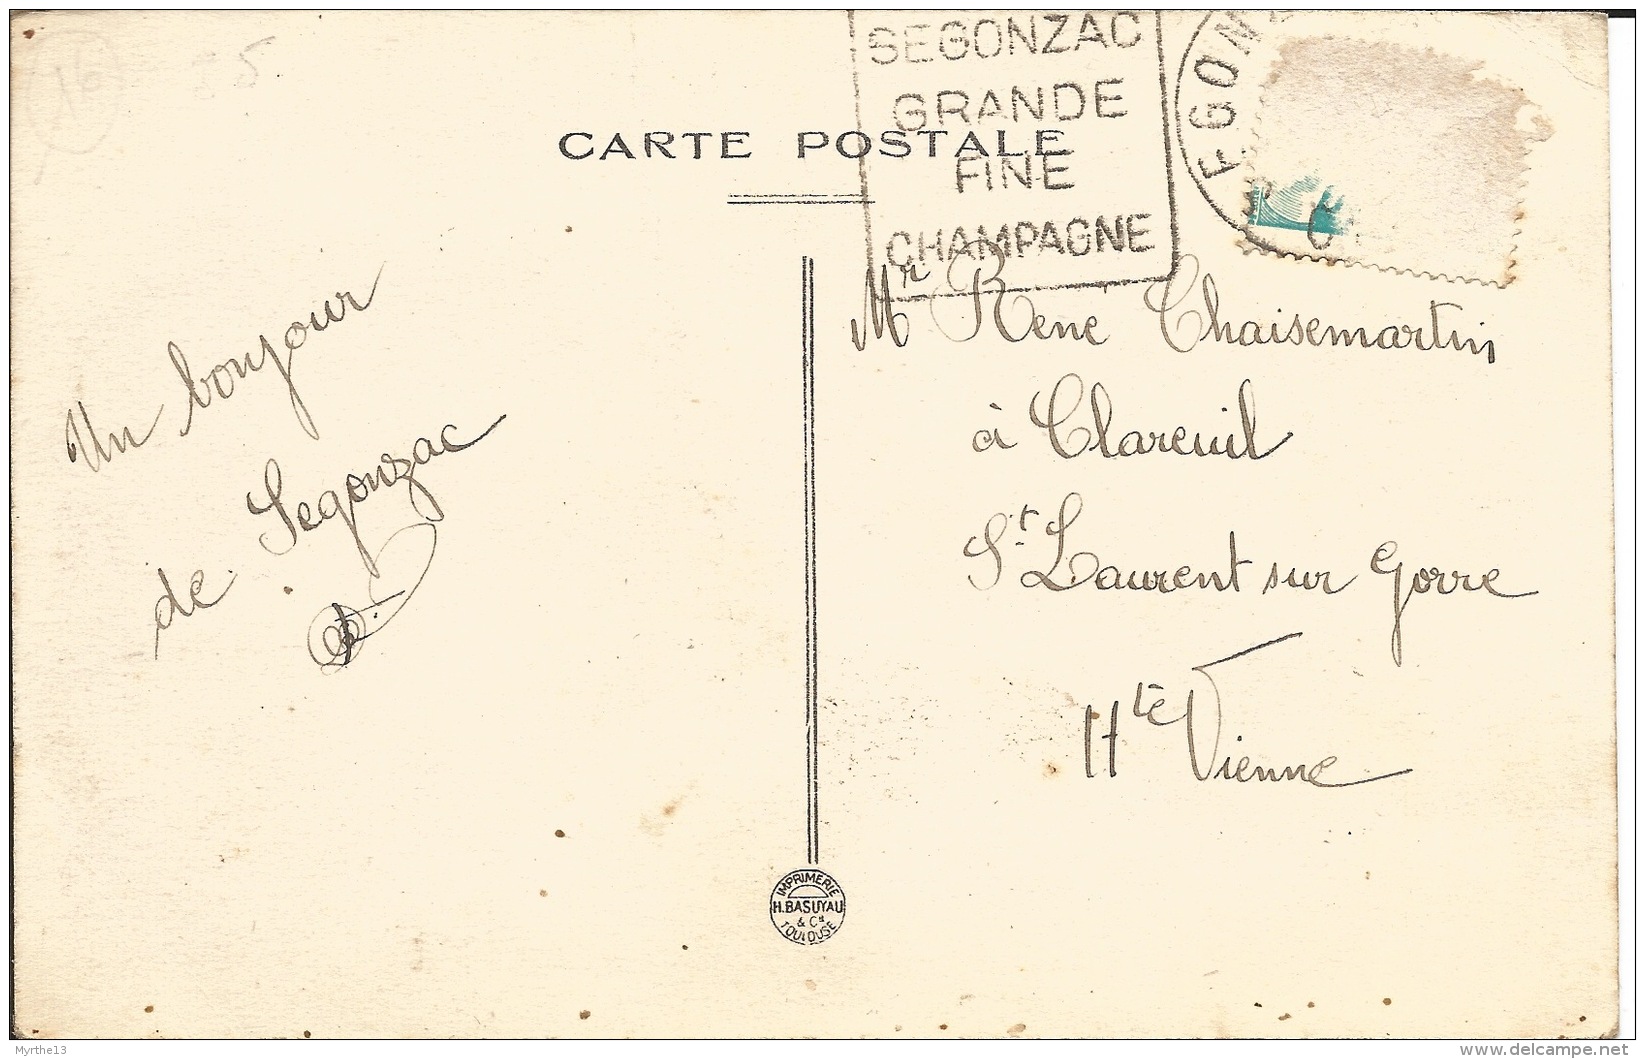 16
5
SEGONZAC
GRANDE
FINE
CHAMPAGNE
CARTE POSTALE
Un bonjour
de Segonzac
Mr René Chaisemartin
à Clareuil
St. Laurent sur Gorre
Hte Vienne
IMPRIMERIE
H. BASUYAU
& Cie
TOULOUSE
Myrthe13
delcampe.net